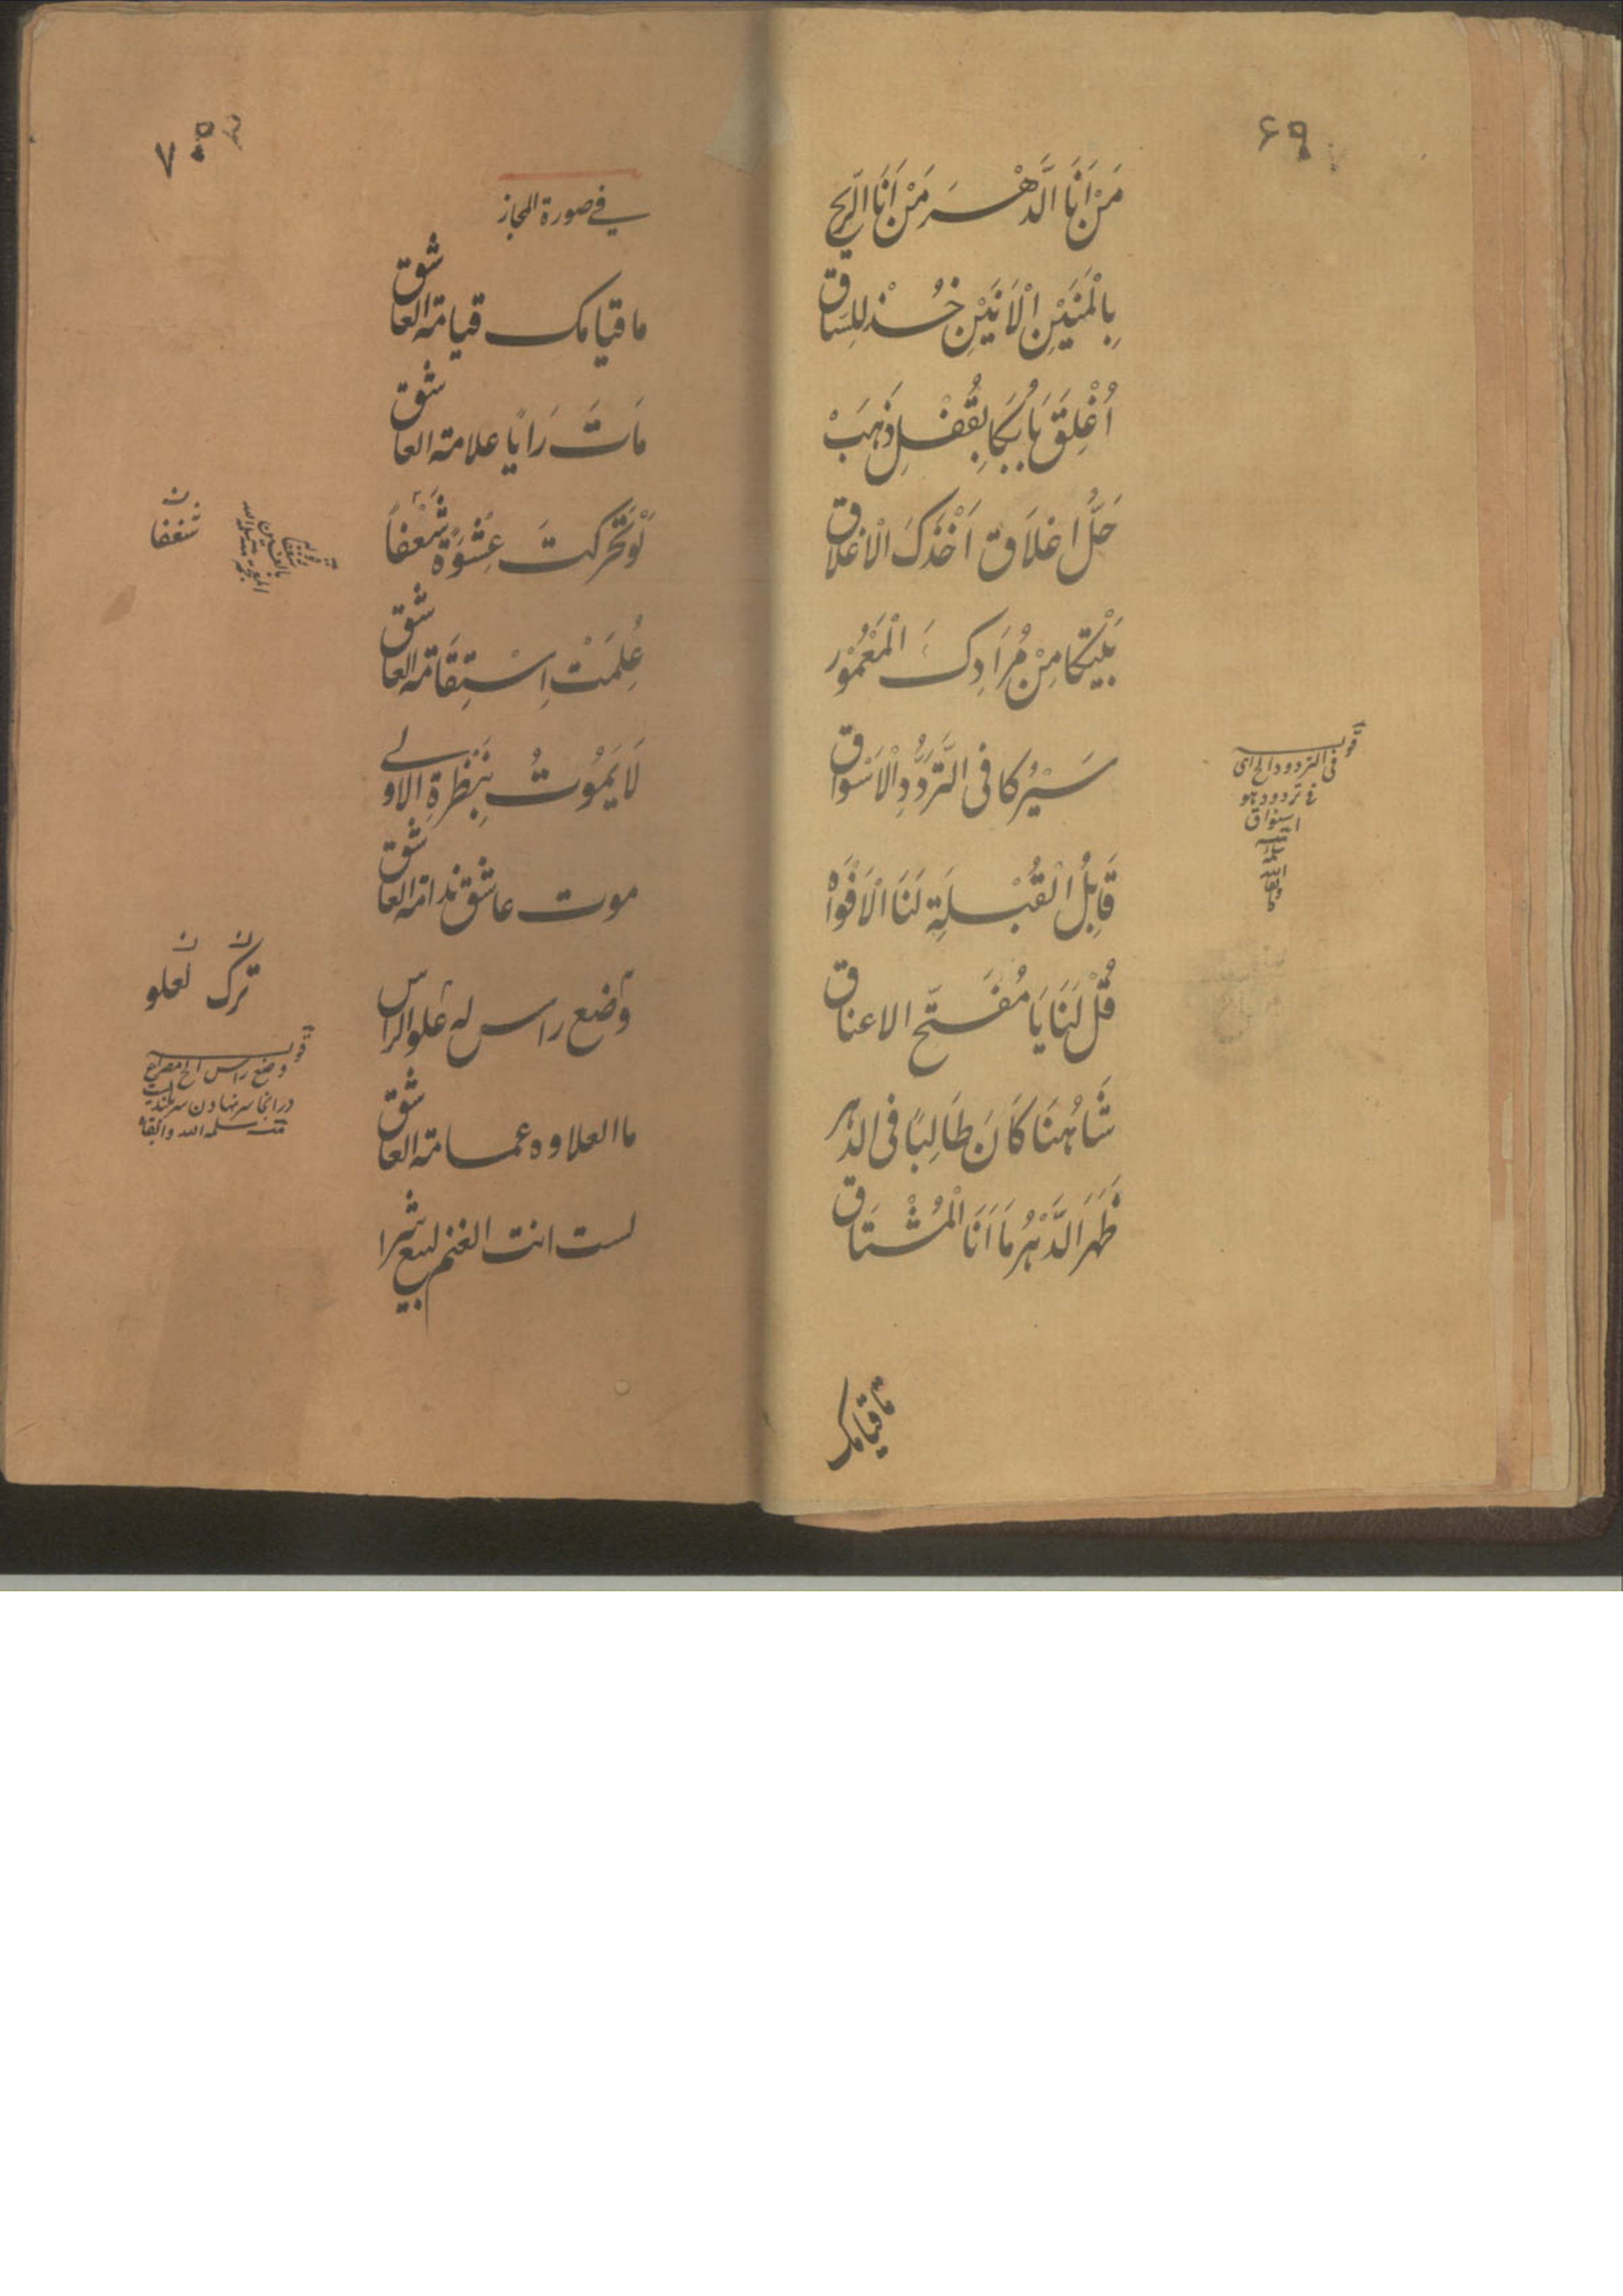 ۶۹
مَنْ اَنَا الدَّهْسَر مَنْ اَنَا الرِّیح
بِالْمَنَیْنِ الْاَنَیْنِ خُذ لِلسَاق
اُغْلِقَ بَابُكَا بِقُفْلِ ذَهَبْ
حَلَّ اغلَاق اَخْذَكَ الْاغلاق
بَیْتُكَا مِنْ مُرَادِكَ الْمَعْمُوْر
سَیْرُكَا فی التَّرَدُّدِ الْاَسْوَاق
قَابِلُ الْقُبْلَةِ لَنَا الْاَفْوَاهْ
قُلْ لَنَا یَا مُفَتّح الاعناق
شَاهُنَا كَانَ طَالِبًا فی الدهر
ظَهَرَ الدَّهْرُ مَا اَنَا الْمُشْتَاق
قوله
فی التردد الخ ای
فی تردد هو
اسواق
ما قیامك
۷۰
فی صورة المجاز
ما قیامك قیامة العاشق
مَاتَ رَایًا علامة العاشق
لَوْ تَحَركتَ عِشْوَةً شَعْفاً
عُلِمَتْ اِسْتِقَامَة العاشق
لَا یَمُوْتُ بِنَظْرَةِ الاولے
موت عاشق ندامة العاشق
وضع راس له علو الراس
ما العلاوه عمامة العاشق
لست انت الغنم لبیع شرا
ن
شغفا
ن ن
ترك لعلو
قوله
وضع راس الخ مصراع
در انجا سر نهادن سر بلندیست
سلمه الله وابقاه